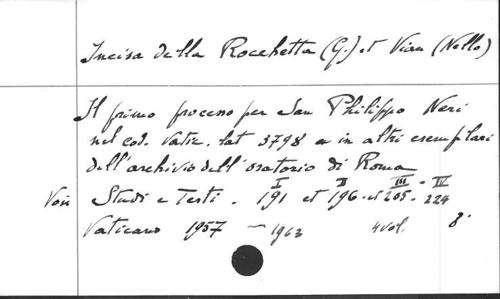 Incisa della Rocchetta (G.) et Vian (Nello)
Il primo processo per San Philippo Neri
nel cod. Vatic. lat 3798 e in altri esemplari
dell'archivio dell'oratorio di Roma
I II III - IV
Voir Studi e Testi. 191 et 196. et 205. 224
Vaticano 1957 - 1963 4 vol. 8°